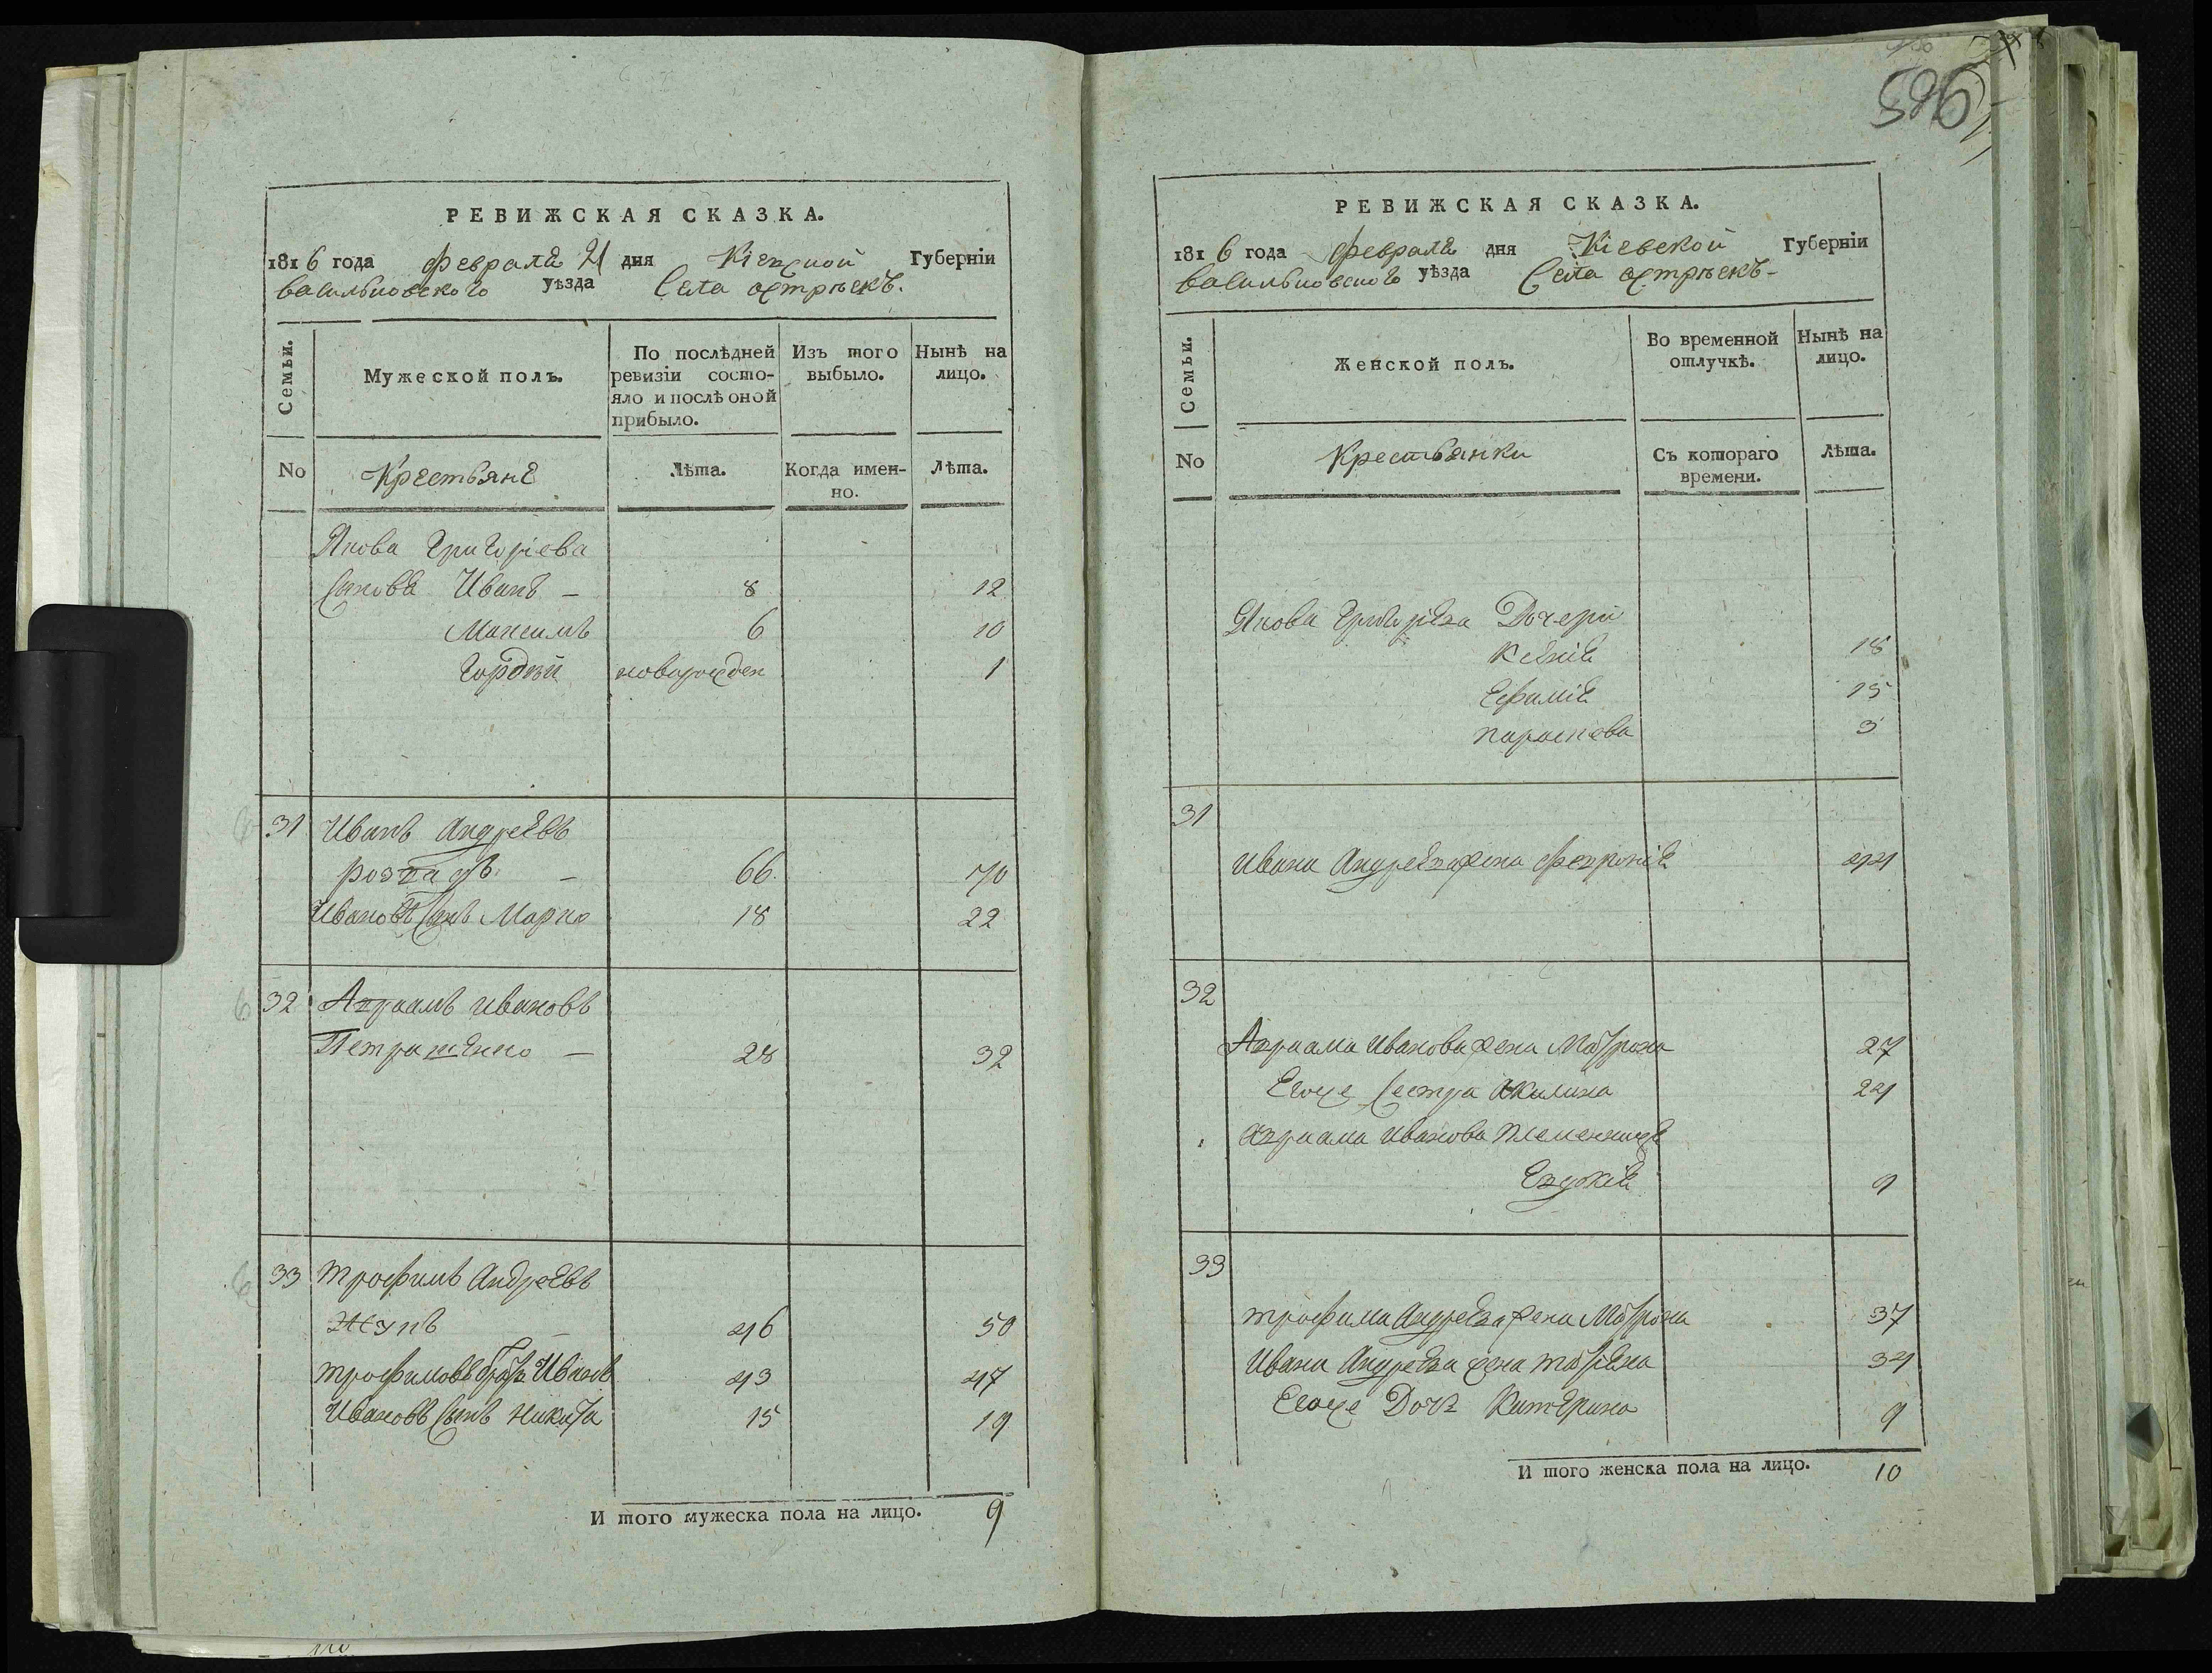 586
РЕВИЖСКАЯ СКАЗКА.
1816 года февраля 21 дня Кіевской Губерніи
васильковского уѣзда Села острѣекъ.
Семьи.
Мужеской полъ.
По послѣдней ревизіи состо-
яло и послѣ оной
прибыло.
Изъ того выбыло.
Нынѣ на лицо.
No
Крестьяне
Лѣта.
Когда имен-
но.
Лѣта.
Якова Григоріева
Сыновя Иванъ — 8 12
Максимъ 6 10
Гордѣй новорожден 1
31 Иванъ Андреевъ
— 66 70
Ивановъ Сынъ Марко 18 22
32 Авраамъ ивановъ
Петрашенко — 28 32
33 трофимъ Андреевъ
46 50
трофимовъ братъ Иванъ 43 47
Ивановъ Сынъ Никита 15 19
И того мужеска пола на лицо. 9
РЕВИЖСКАЯ СКАЗКА.
1816 года февраля дня Кіевской Губерніи
васильковского уѣзда Села острѣекъ-
Семьи.
Женской полъ.
Во временной
отлучкѣ.
Нынѣ на
лицо.
No
Крестьянки
Съ котораго
времени.
Лѣта.
Якова Григоріева Дочери
18
15
параскева 3
31
Ивана Андреева жена Февронія 44
32
Авраама Иванова жена Матрона 27
Егоже Сестра Акилина 24
Авраама Иванова племенница
Евдокія 9
33
трофима Андреева жена Матрона 37
Ивана Андреева жена татіана 34
Егоже Дочь Катерина 9
И того женска пола на лицо. 10